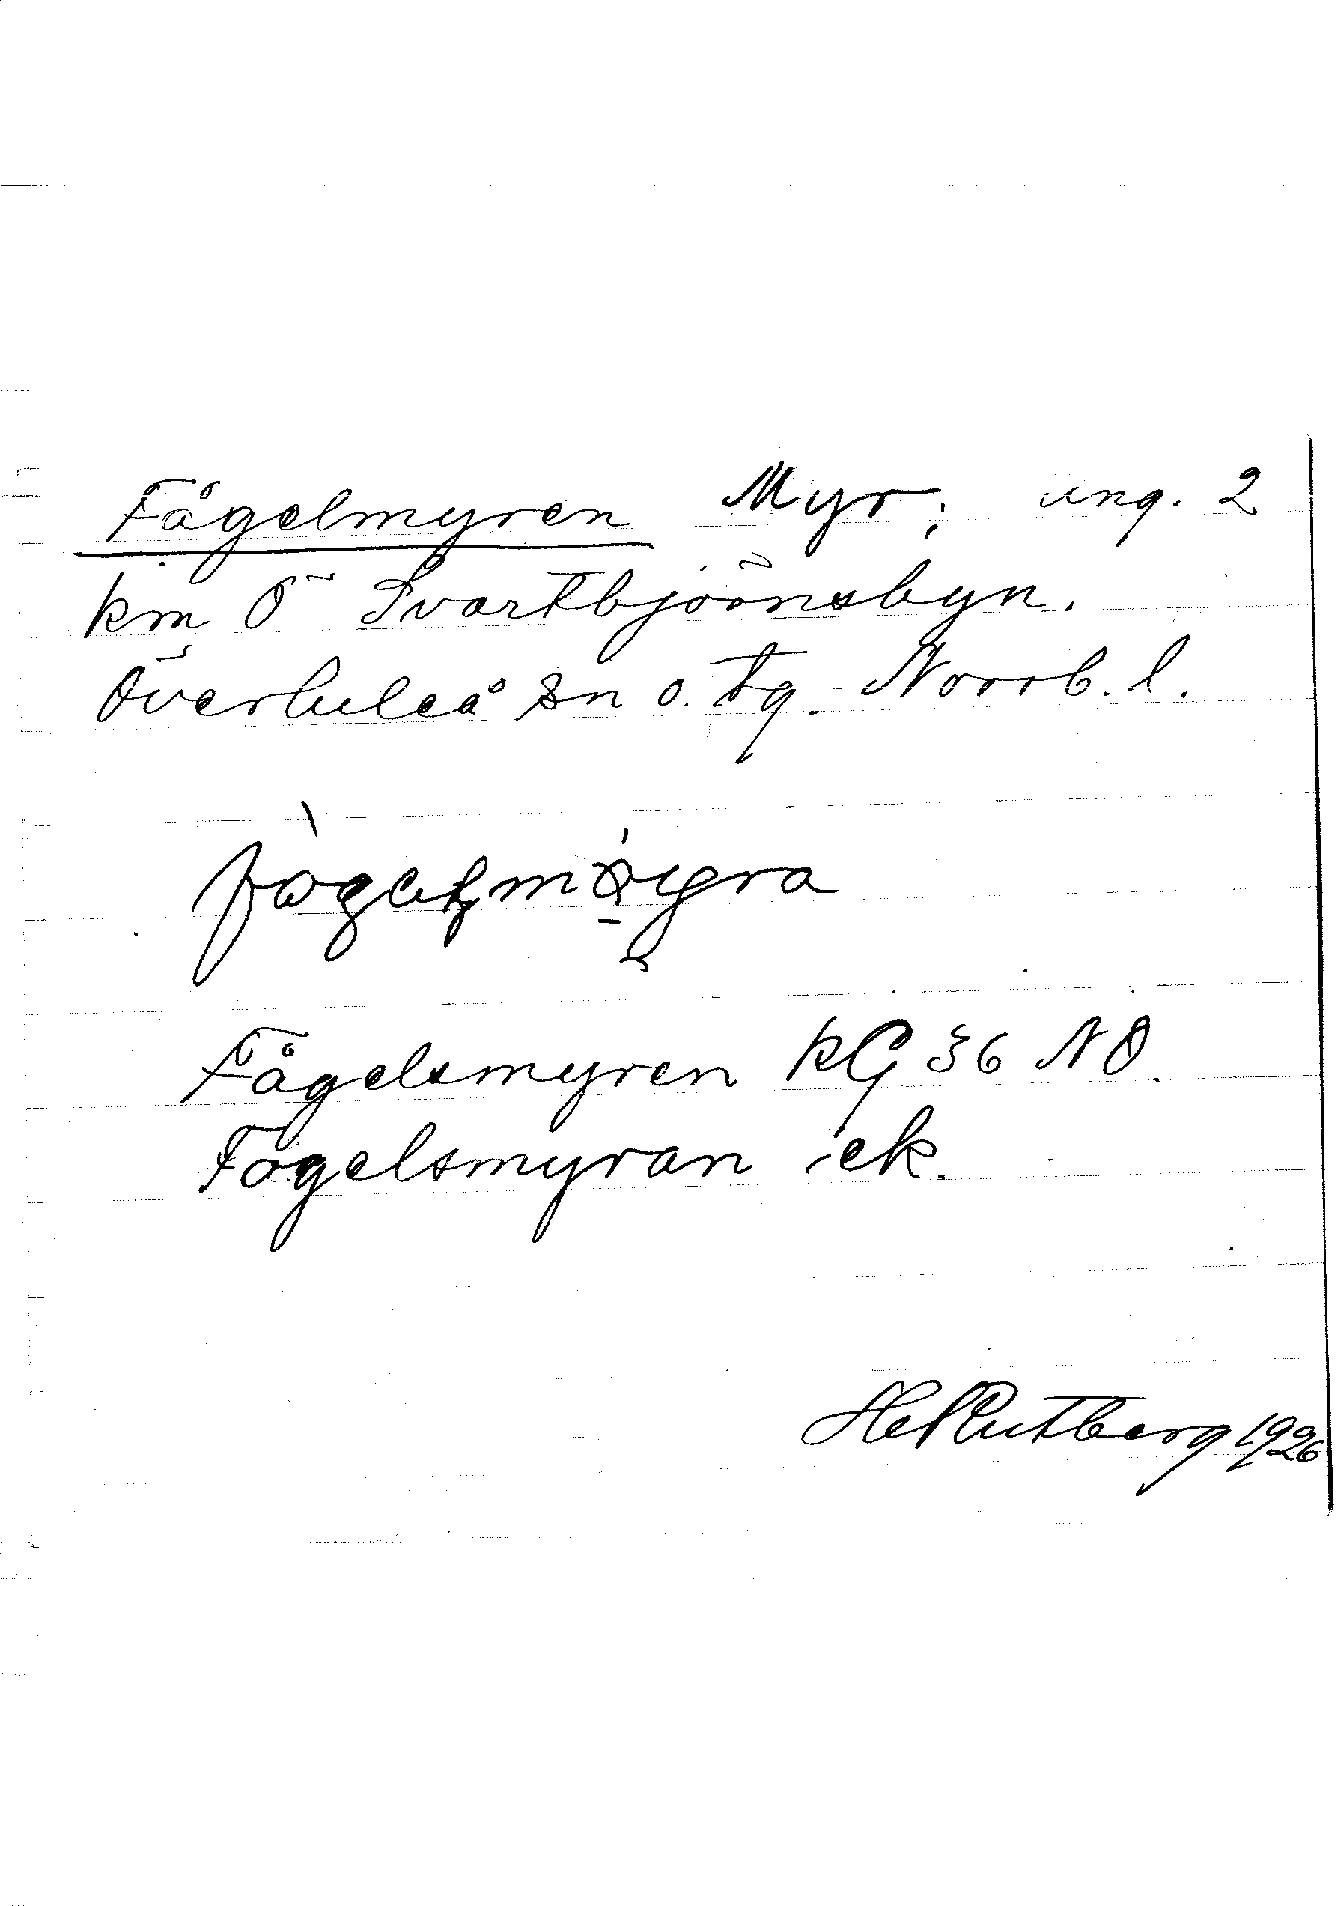 Fågelmyren Myr; ung. 2
km Ö Svartbjörnsbyn.
Överluleå sn o. tg. Norrb. l.
Fågelsmyren kG 36 NO.
Fogelsmyran ek.
H Rutberg 1926